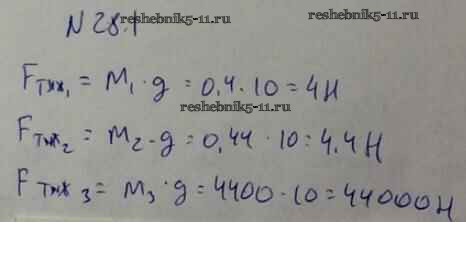 reshebnik5-11.ru reshebnik5-11.ru
N 28.1
Fтяж₁ = m₁ · g = 0,4 · 10 = 4Н
reshebnik5-11.ru
Fтяж₂ = m₂ · g = 0,44 · 10 = 4,4Н
Fтяж 3 = m₃ · g = 4400 · 10 = 44000Н